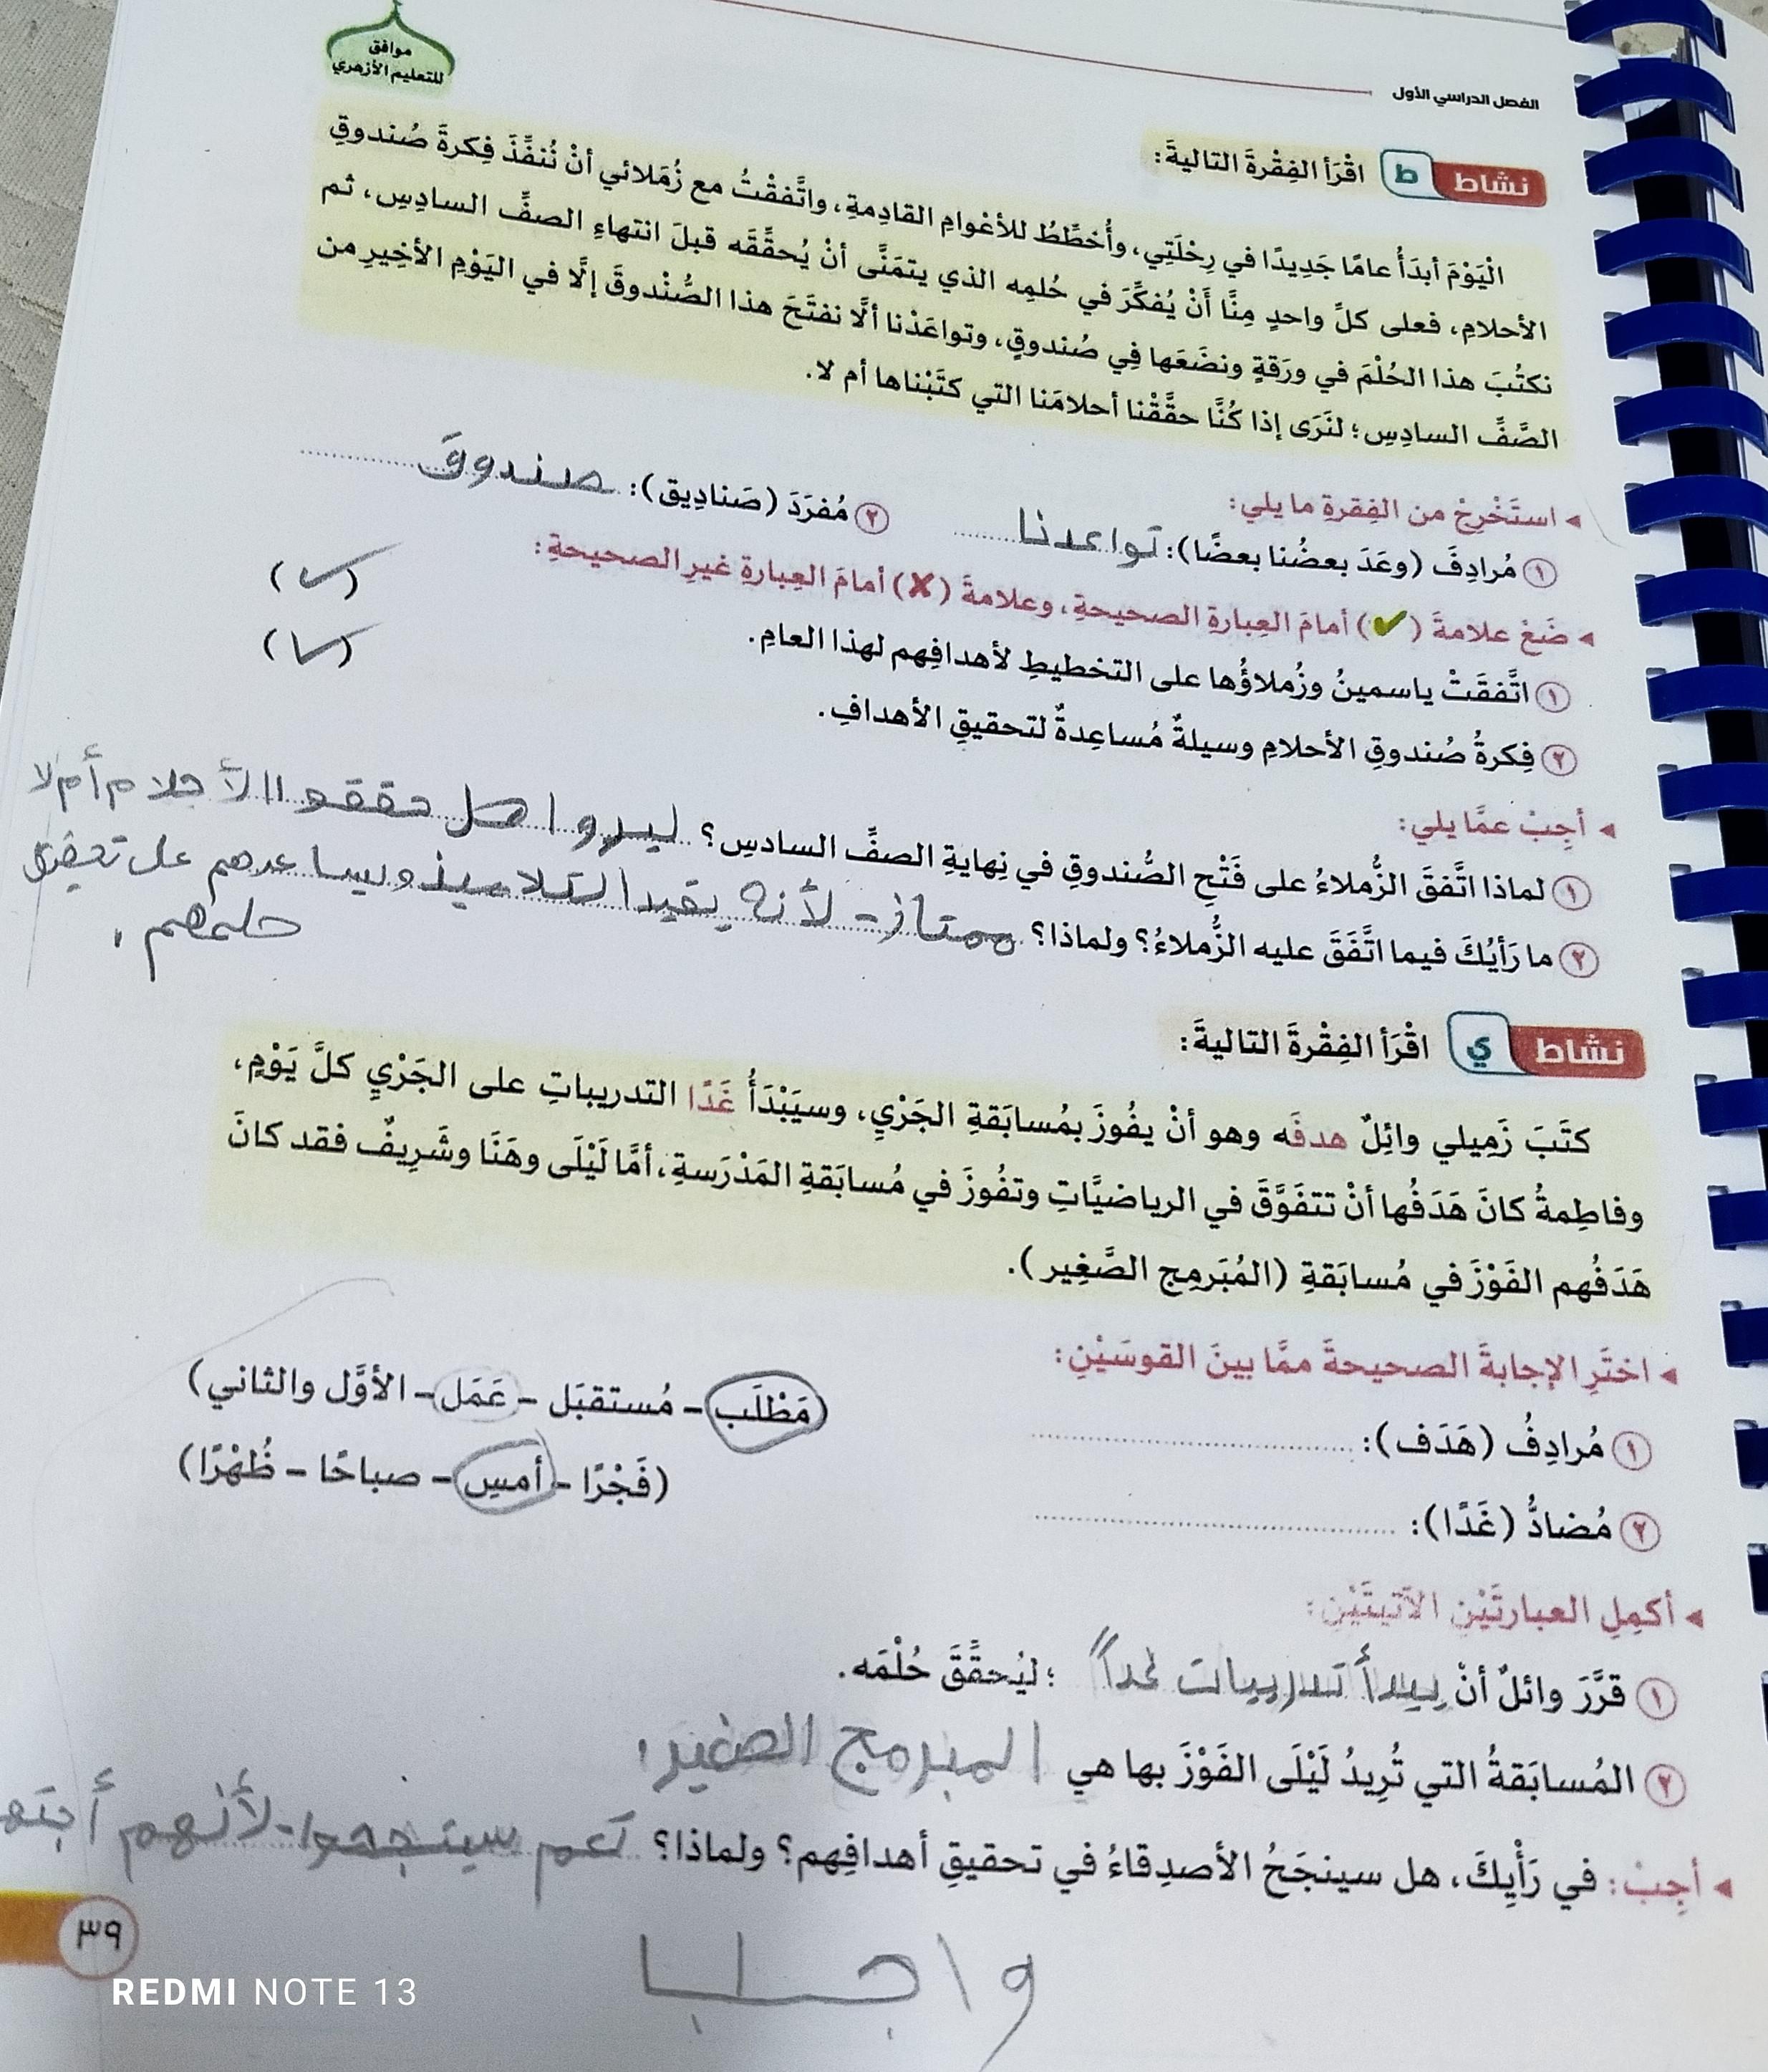 موافق
للتعليم الأزهري
الفصل الدراسي الأول
نشاط ط اقْرَأ الفِقْرةَ التاليةَ:
الْيَوْمَ أبدَأُ عامًا جَدِيدًا في رِحْلَتِي، وأُخطِّطُ للأعْوامِ القادِمةِ، واتَّفقْتُ مع زُمَلائي أنْ نُنفِّذَ فِكرةَ صُندوقِ
الأحلامِ، فعلى كلِّ واحدٍ مِنَّا أَنْ يُفكِّرَ في حُلمِه الذي يتمَنَّى أنْ يُحقِّقَه قبلَ انتهاءِ الصفِّ السادِسِ، ثم
نكتُبَ هذا الحُلْمَ في ورَقةٍ ونضَعَها فِي صُندوقٍ، وتواعَدْنا ألَّا نفتَحَ هذا الصُّنْدوقَ إلَّا في اليَوْمِ الأخِيرِ من
الصَّفِّ السادِسِ؛ لنَرَى إذا كُنَّا حقَّقْنا أحلامَنا التي كتَبْناها أم لا.
◂ استَخْرِجْ من الفِقرةِ ما يلي:
١ مُرادِفَ (وعَدَ بعضُنا بعضًا): تواعدنا ٢ مُفرَدَ (صَنادِيق): صندوقَ
◂ ضَعْ علامةَ (✔) أمامَ العِبارةِ الصحيحةِ، وعلامةَ (✘) أمامَ العِبارةِ غيرِ الصحيحةِ:
١ اتَّفقَتْ ياسمينُ وزُملاؤُها على التخطيطِ لأهدافِهم لهذا العامِ. (✓)
٢ فِكرةُ صُندوقِ الأحلامِ وسيلةٌ مُساعِدةٌ لتحقيقِ الأهدافِ. (✓)
◂ أجِبْ عمَّا يلي:
١ لماذا اتَّفقَ الزُّملاءُ على فَتْحِ الصُّندوقِ في نِهايةِ الصفِّ السادسِ؟ ليروا هل حققوا الأحلام أم لا
٢ ما رَأيُكَ فيما اتَّفَقَ عليه الزُّملاءُ؟ ولماذا؟ ممتاز - لأنه يفيد التلاميذ ويساعدهم على تحقيق
حلمهم.
نشاط ي اقْرَأ الفِقْرةَ التاليةَ:
كتَبَ زَمِيلي وائِلٌ هدفَه وهو أنْ يفُوزَ بمُسابَقةِ الجَرْيِ، وسيَبْدَأُ غَدًا التدريباتِ على الجَرْيِ كلَّ يَوْمٍ،
وفاطِمةُ كانَ هَدَفُها أنْ تتفَوَّقَ في الرياضيَّاتِ وتفُوزَ في مُسابَقةِ المَدْرَسةِ، أمَّا لَيْلَى وهَنَا وشَرِيفٌ فقد كانَ
هَدَفُهم الفَوْزَ في مُسابَقةِ (المُبَرمِج الصَّغِير).
◂ اختَرِ الإجابةَ الصحيحةَ ممَّا بينَ القوسَيْنِ:
١ مُرادِفُ (هَدَف): (مَطْلَب – مُستقبَل – عَمَل – الأوَّل والثاني)
٢ مُضادُّ (غَدًا): (فَجْرًا – أمسِ – صباحًا – ظُهْرًا)
◂ أكمِلِ العبارتَيْنِ الآتيتَيْنِ:
١ قرَّرَ وائلٌ أنْ يبدأ تدريبات غداً ؛ ليُحقِّقَ حُلْمَه.
٢ المُسابَقةُ التي تُرِيدُ لَيْلَى الفَوْزَ بها هي المبرمج الصغير.
◂ أجِبْ: في رَأْيِكَ، هل سينجَحُ الأصدِقاءُ في تحقيقِ أهدافِهم؟ ولماذا؟ نعم سينجحوا - لأنهم
٣٩
واجب
REDMI NOTE 13